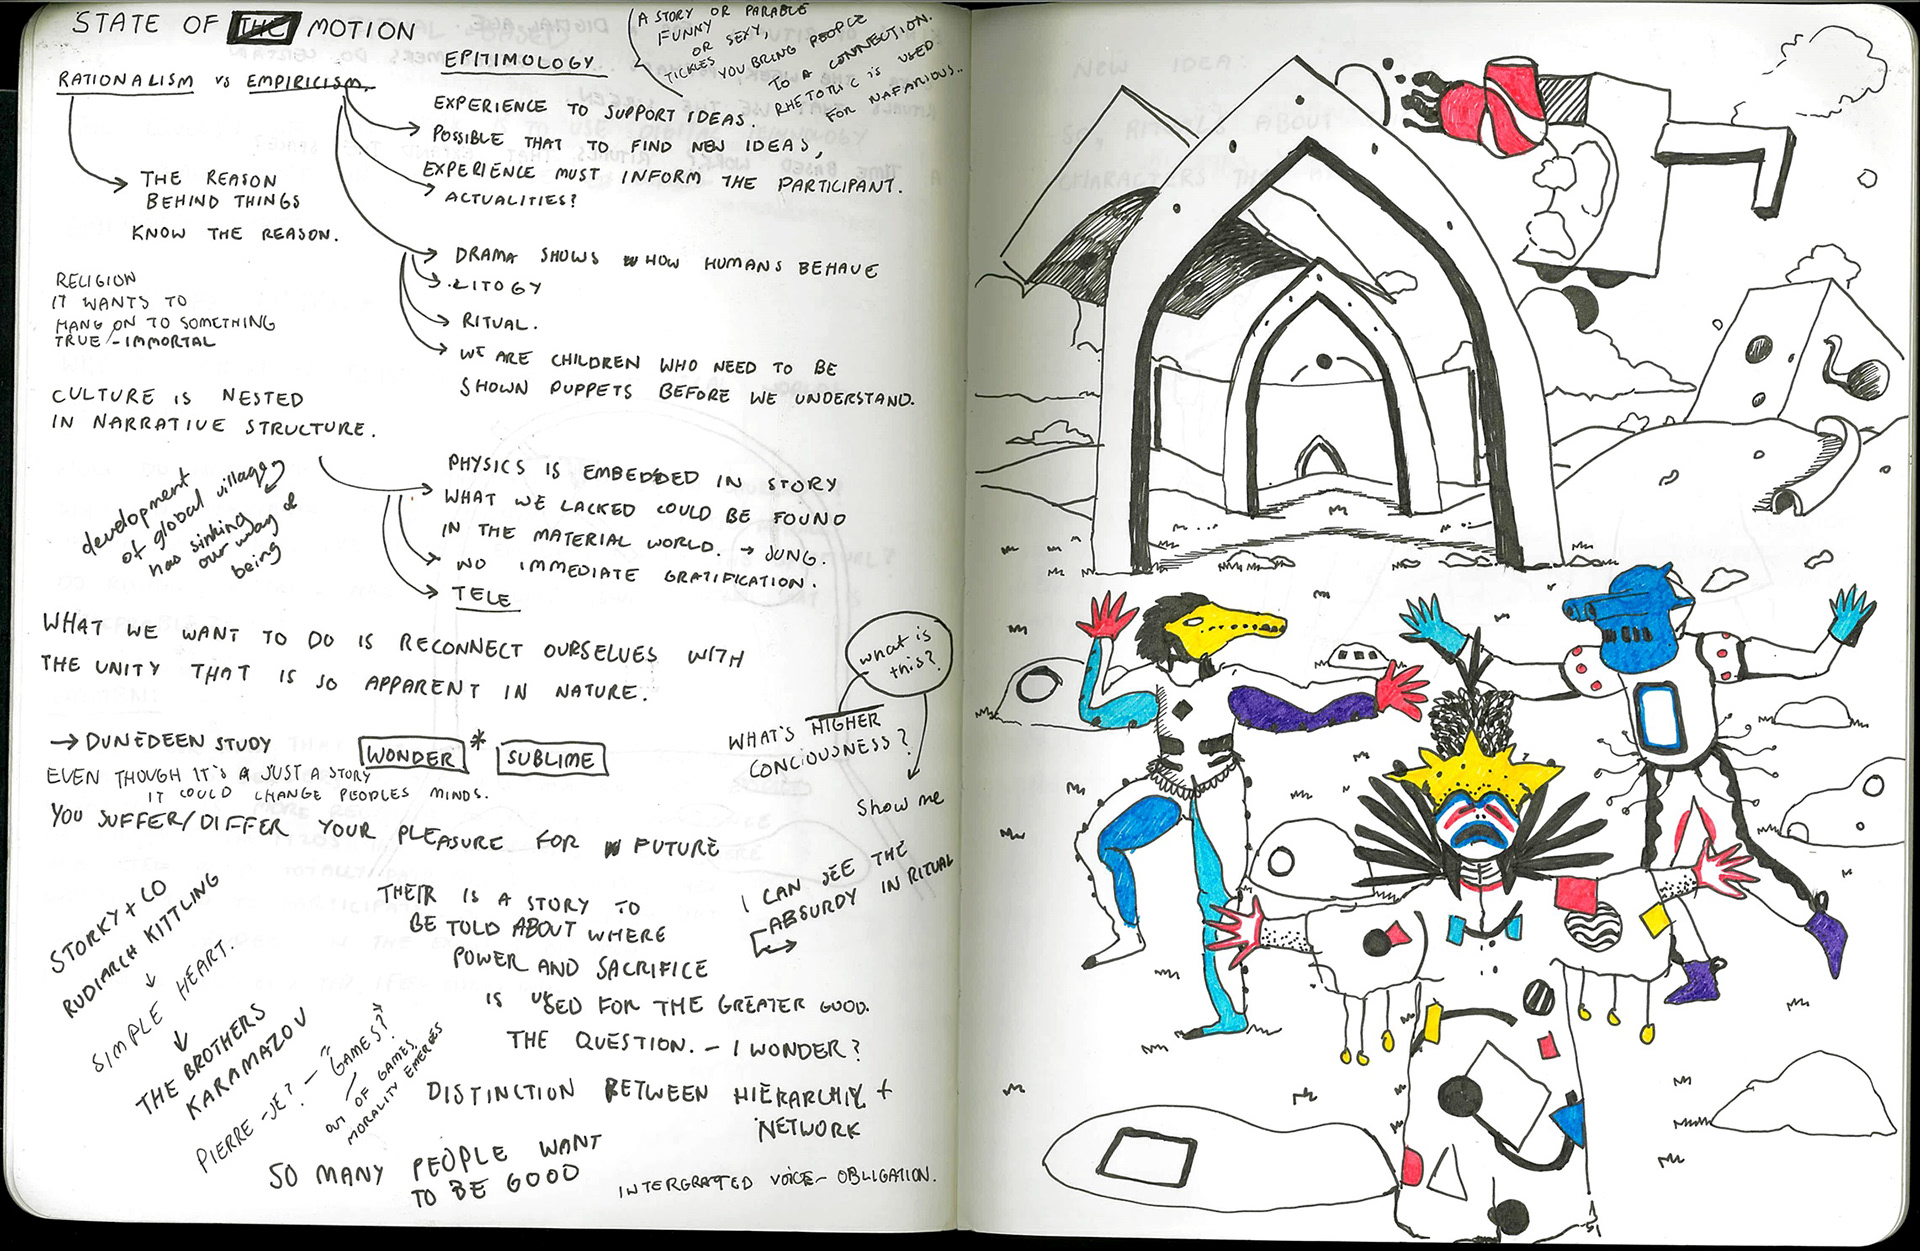 STATE OF THE MOTION
RATIONALISM vs EMPIRICISM
EPITIMOLOGY
A STORY OR PARABLE
FUNNY
OR SEXY,
TICKLES YOU BRING PEOPLE
TO A CONNECTION.
RHETORIC IS USED
FOR NAFARIOUS..
EXPERIENCE TO SUPPORT IDEAS.
POSSIBLE THAT TO FIND NEW IDEAS,
EXPERIENCE MUST INFORM THE PARTICIPANT.
ACTUALITIES?
THE REASON
BEHIND THINGS
KNOW THE REASON.
DRAMA SHOWS HOW HUMANS BEHAVE
LITOGY
RITUAL.
WE ARE CHILDREN WHO NEED TO BE
SHOWN PUPPETS BEFORE WE UNDERSTAND.
RELIGION
IT WANTS TO
HANG ON TO SOMETHING
TRUE/-IMMORTAL
CULTURE IS NESTED
IN NARRATIVE STRUCTURE.
PHYSICS IS EMBEDDED IN STORY
WHAT WE LACKED COULD BE FOUND
IN THE MATERIAL WORLD. → JUNG.
NO IMMEDIATE GRATIFICATION.
TELE
development
of global village
has sinking
our way of
being
WHAT WE WANT TO DO IS RECONNECT OURSELVES WITH
THE UNITY THAT IS SO APPARENT IN NATURE.
what is
this?
WHAT'S HIGHER
CONCIOUSNESS?
Show me
→ DUNEDEEN STUDY
WONDER * SUBLIME
EVEN THOUGH IT'S A JUST A STORY
IT COULD CHANGE PEOPLES MINDS.
YOU SUFFER/DIFFER YOUR PLEASURE FOR FUTURE
I CAN SEE THE
ABSURDY IN RITUAL
THEIR IS A STORY TO
BE TOLD ABOUT WHERE
POWER AND SACRIFICE
IS USED FOR THE GREATER GOOD.
THE QUESTION. - I WONDER?
DISTINCTION BETWEEN HIERARCHIY +
NETWORK
STORKY + CO
RUDIARCH KITTLING
SIMPLE HEART.
THE BROTHERS
KARAMAZOV
PIERRE-JE? - "GAMES?"
OUT OF GAMES,
MORALITY EMERGES
SO MANY PEOPLE WANT
TO BE GOOD
INTERGRATED VOICE - OBLIGATION.
NEW IDEA: